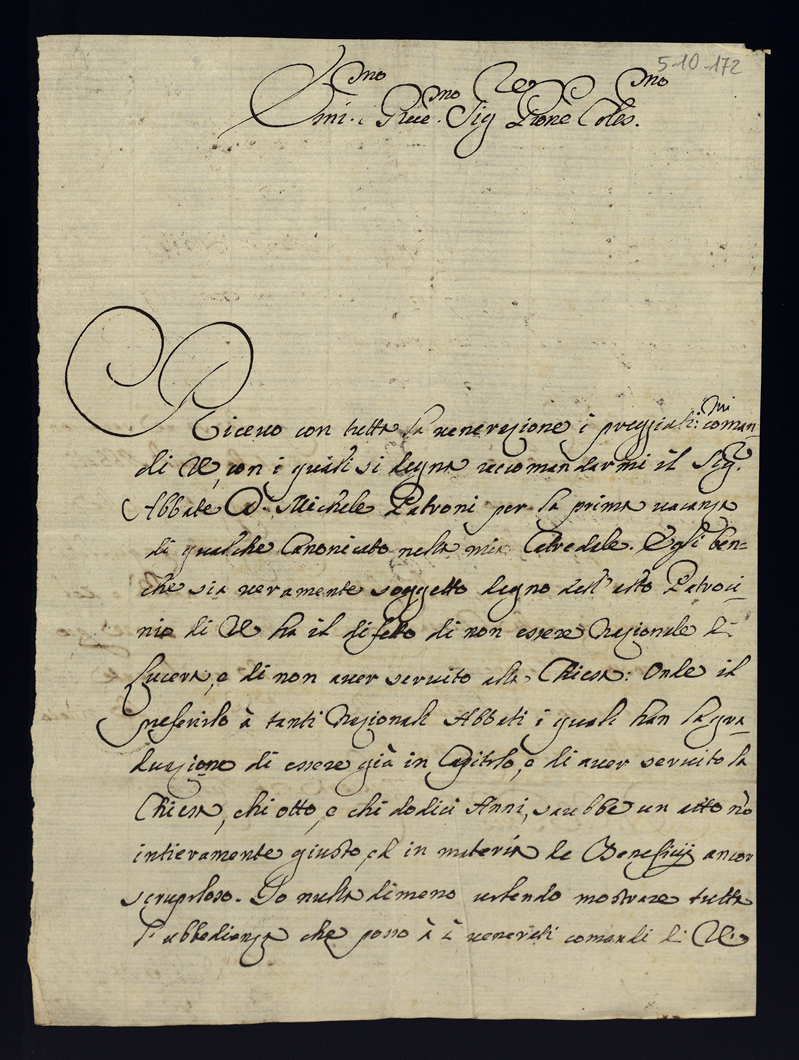 5-10-172
Emi.mo e Reve.mo Sig.re Prone Coles.mo
Ricevo con tutta la venerazione i preggiati:mi coman-
di di VE, con i quali si degna raccomandarmi il Sig.r
Abbate D. Michele Patroni per la prima vacanza
di qualche Canonicato nella mia Catredale. Egli ben=
che sia veramente soggetto degno dell' alto Patroci-
nio di VE ha il difetto di non essere Nazionale di
Lucera, e di non aver servito alla Chiesa: Onde il
preferirlo à tanti Nazionali Abbati i quali han la gra-
duazione di essere già in Capitolo, e di aver servito la
Chiesa, chi otto, e chi dodici Anni, sarebbe un atto nõ
intieramente giusto, ed in materia de Beneficij ancor
scrupoloso. Io nulla dimeno volendo mostrare tutta
l'ubbedienza che posso à i venerati comandi di VE